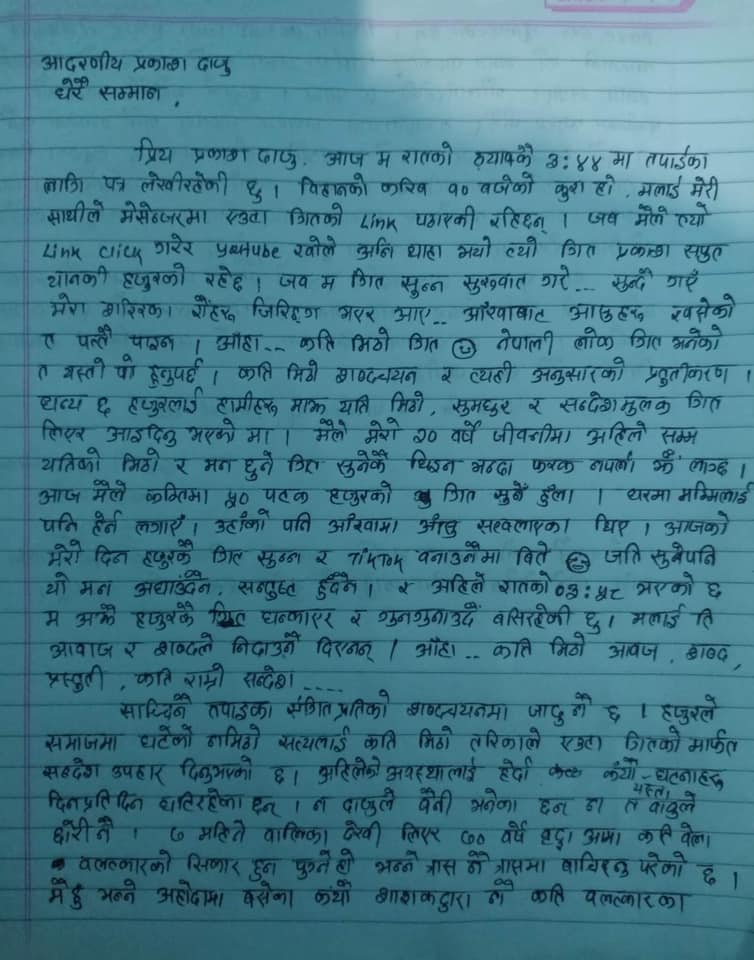 आदरणीय प्रकाश दाजु
धेरै सम्मान,
प्रिय प्रकाश दाजु, आज म रातको ठ्याक्कै ३:४४ मा तपाईका
लागि पत्र लेखीरहेकी छु । विहानको करिव १० वजेको कुरा हो, मलाई मेरी
साथीले मेसेन्जरमा एउटा गितको Link पठाएकी रहिछन् । जव मैले त्यो
Link click गरेर youtube खोले अनि थाहा भयो त्यो गित प्रकाश सपुत
ज्यानकी हजुरको रहेछ । जव म गित सुन्न सुरुवात गरे... सुन्दै गएँ
मेरा शरिरका रौंहरु जिरिङ्ग भएर आए.. आँखावाट आसुहरु खसेको
त पत्तै पाइन । आँहा... कति मिठो गित ☺ नेपाली लोक गित भनेको
त यस्तो पो हुनुपर्छ । कति मिठो शव्दचयन र त्यही अनुसारको प्रस्तुतीकरण ।
धन्य छ हजुरलाई हामीहरु माझ यति मिठो, सुमधुर र सन्देशमुलक गित
लिएर आइदिनु भएको मा । मैले मेरो २० वर्षे जीवनीमा अहिले सम्म
यतिको मिठो र मन छुने गित सुनेकै थिइन भन्दा फरक नपर्ला झैं लाग्छ ।
आज मैले कम्तिमा ५० पटक हजुरको गित सुनें हुँला । घरमा मम्मिलाई
पनि हेर्न लगाएँ । उहाँको पनि आँखामा आँशु सल्वलाएका थिए । आजको
मेरो दिन हजुरकै गित सुन्न र TikTok वनाउनैमा विते ☺ जति सुनेपनि
यो मन अघाउँदैन, सन्तुष्ट हुँदैन । र अहिले रातको ०३:५८ भएको छ
म अझै हजुरकै गित घन्काएर र गुनगुनाउदै वसिरहेकी छु । मलाई ति
आवाज र शव्दले निदाउनै दिएनन् । आँहा .. कति मिठो आवज, शव्द,
प्रस्तुती, कति राम्रो सन्देश ....
साच्चिनै तपाइका संगित प्रतिको शव्दचयनमा जादु नै छ । हजुरले
समाजमा घटेको नमिठो सत्यलाई कति मिठो तरिकाले एउटा गितको मार्फत
सन्देश उपहार दिनुभएको छ । अहिलेको अवस्थालाई हेर्दा कयौं यस्ता घटनाहरु
दिनप्रतिदिन घटिरहेका छन् । न दाजुले वैनी भनेका छन् न त वावुले
छोरी नै । ७ महिने वालिका देखी लिएर ७० वर्षे वृद्धा आमा कति वेला
वलत्कारको सिकार हुन पुग्ने हो भन्ने त्रास नै त्रासमा वाचिरनु परेको छ ।
मै हुँ भन्ने अहोदामा वसेका कयौं शाशकद्वारा नै कति वलत्कारका